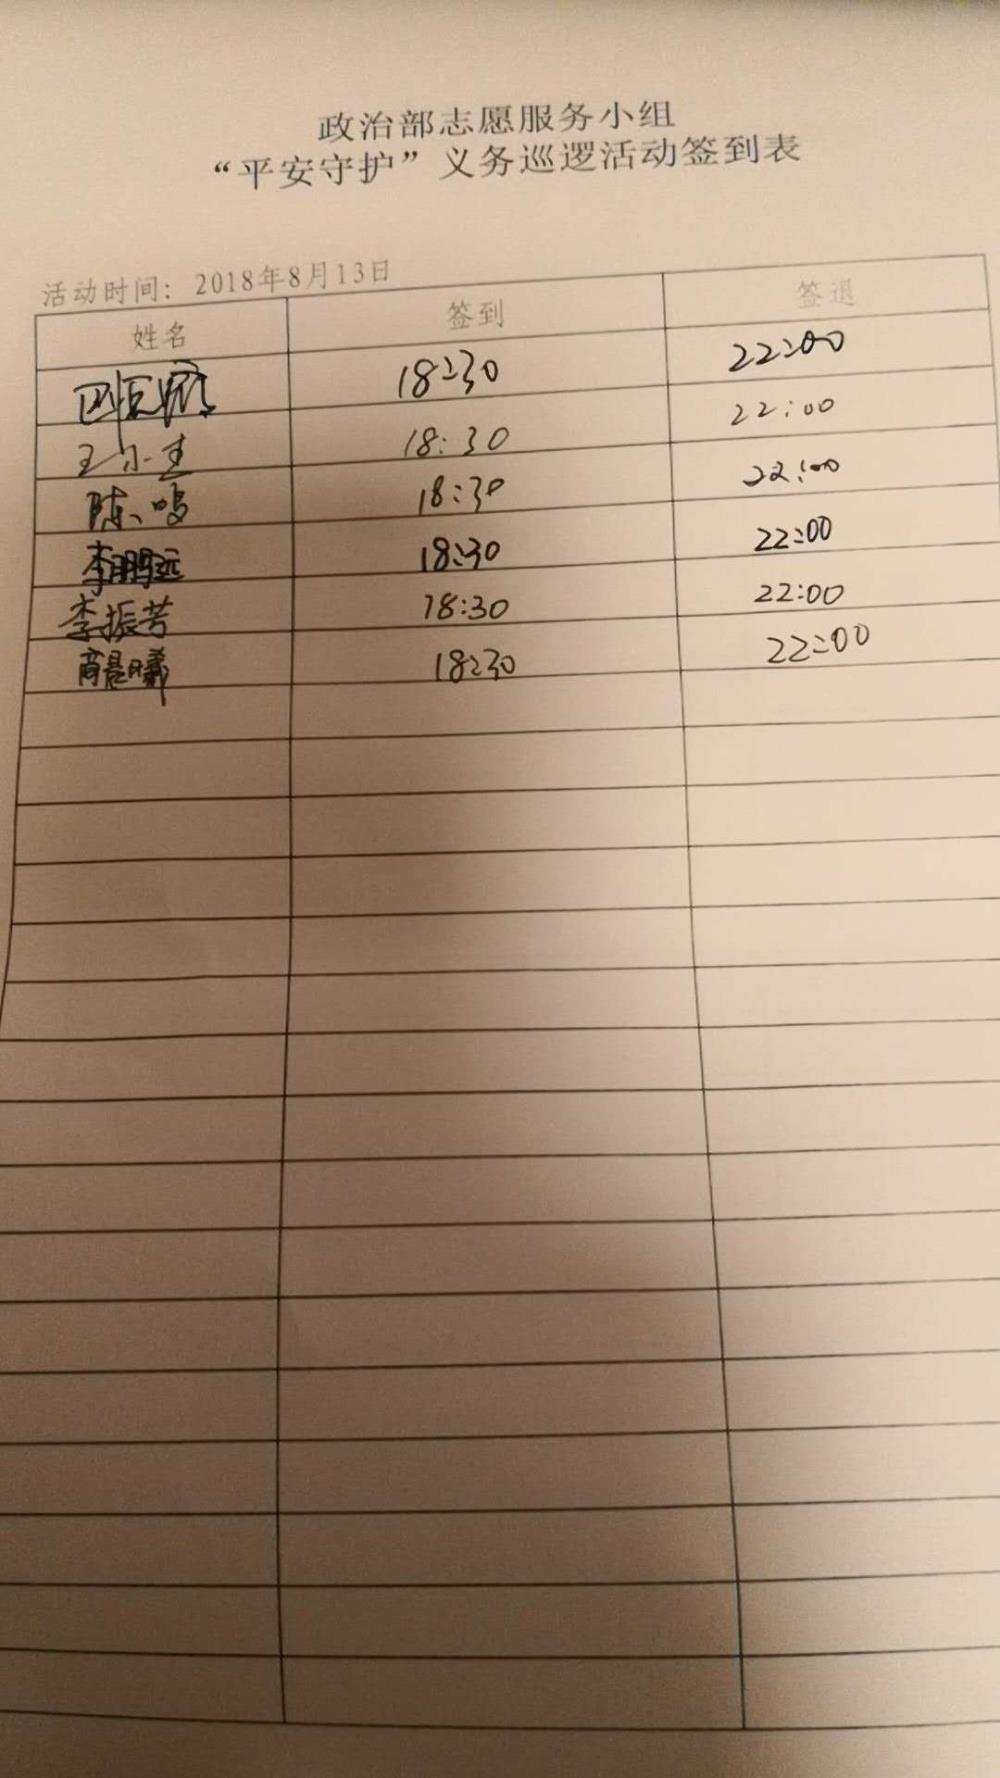 政治部志愿服务小组
“平安守护”义务巡逻活动签到表
活动时间：2018年8月13日
姓名 签到 签退
18:30 22:00
王小 18:30 22:00
陈鸣 18:30 22:00
李鹏远 18:30 22:00
李振芳 18:30 22:00
商晨曦 18:30 22:00